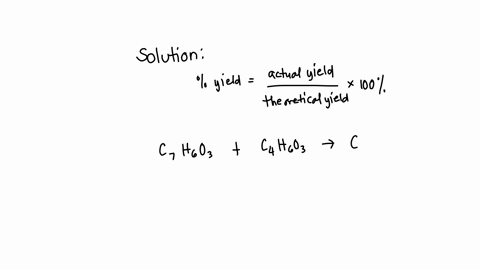 Solution:
% yield = actual yield / theoretical yield × 100%
C₇H₆O₃ + C₄H₆O₃ → C